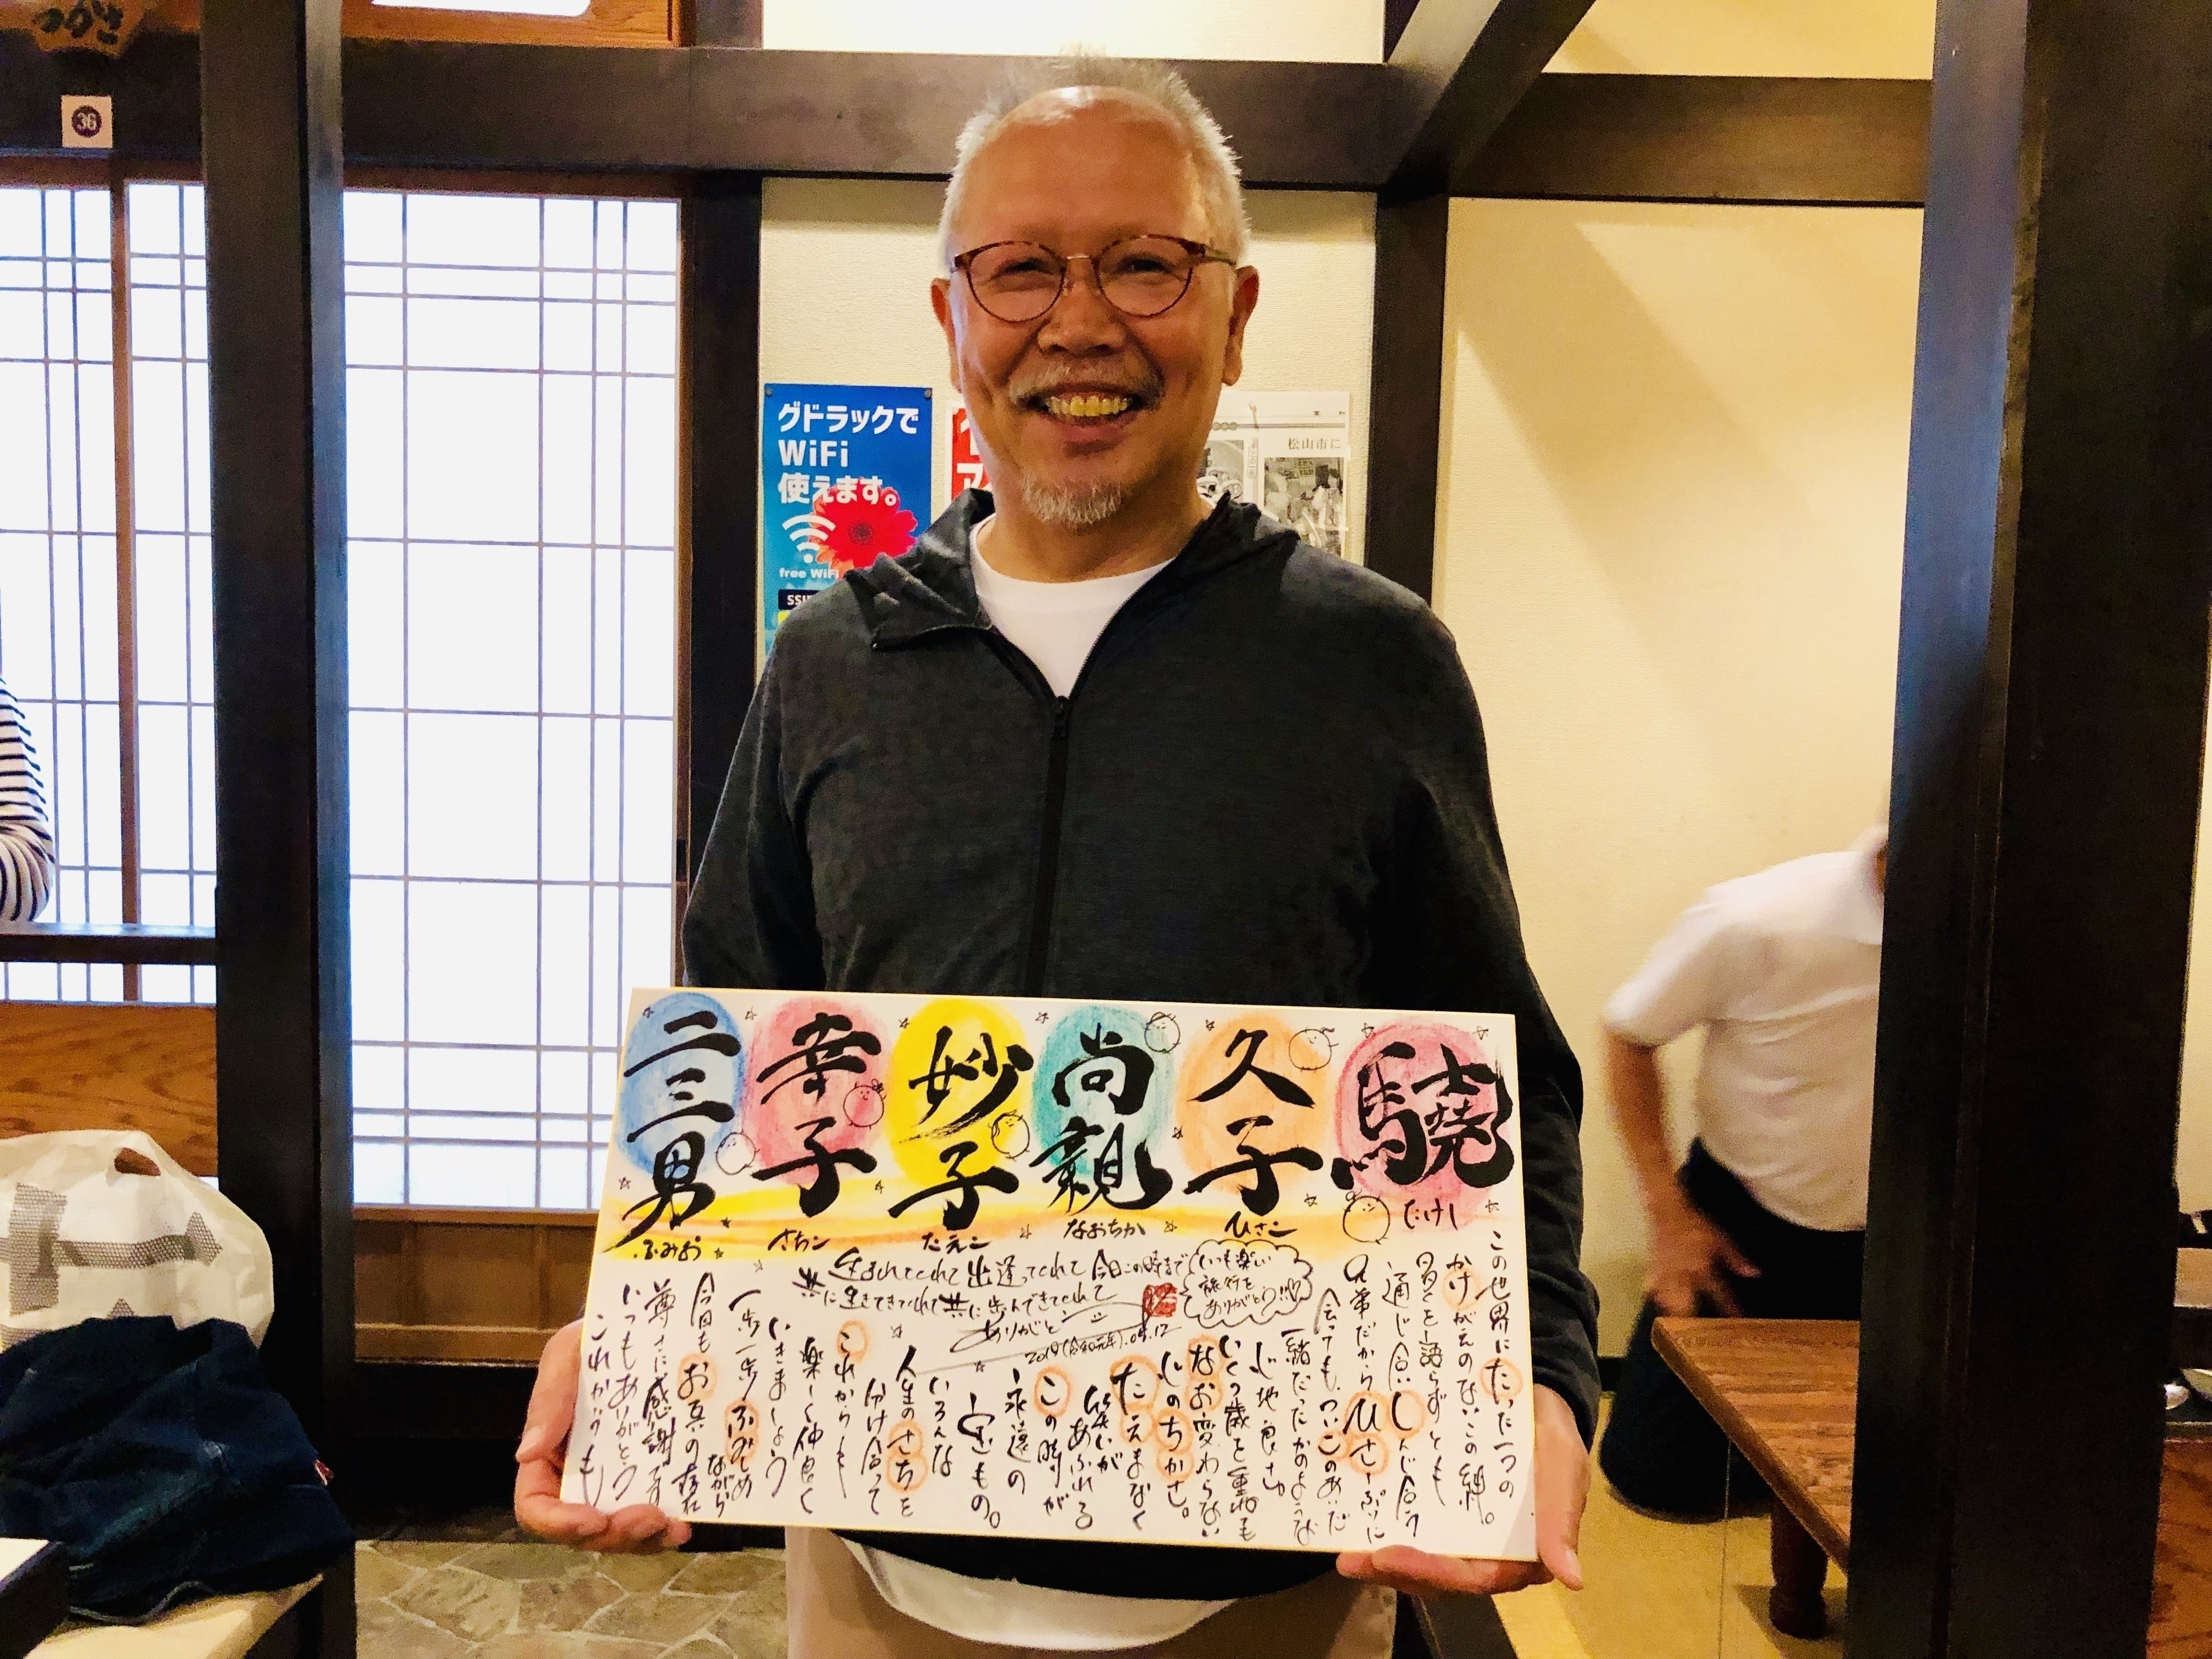 つかさ
36
グドラックで
WiFi
使えます。
free WiFi
松山市に
驍
たけし
久子
ひさこ
尚親
なおちか
妙子
たえこ
幸子
さちこ
二三男
ふみお
生まれてくれて出逢ってくれて今日この時まで
共に生きてきてくれて共に歩んできてくれて
ありがとう
2019(令和元年).05.12
いつも楽しい
旅行を
ありがとう!!
この世界にたった一つの
かけがえのないこの絆。
多くを語らずとも
通じ合いしんじ合う
兄弟だからひさしぶりに
会っても、ついこのあいだ
一緒だったかのような
心地良さ。
いくつ歳を重ねても
なお変わらない
心のちかさ。
たえまなく
笑いがあふれる
この時が
永遠の
宝もの。
いろんな
人生のさちを
分け合って
これからも
楽しく仲良く
いきましょう
一歩一歩ふみしめ
ながら
今日もお互の存在
尊さに感謝です
いつもありがとう
これからも